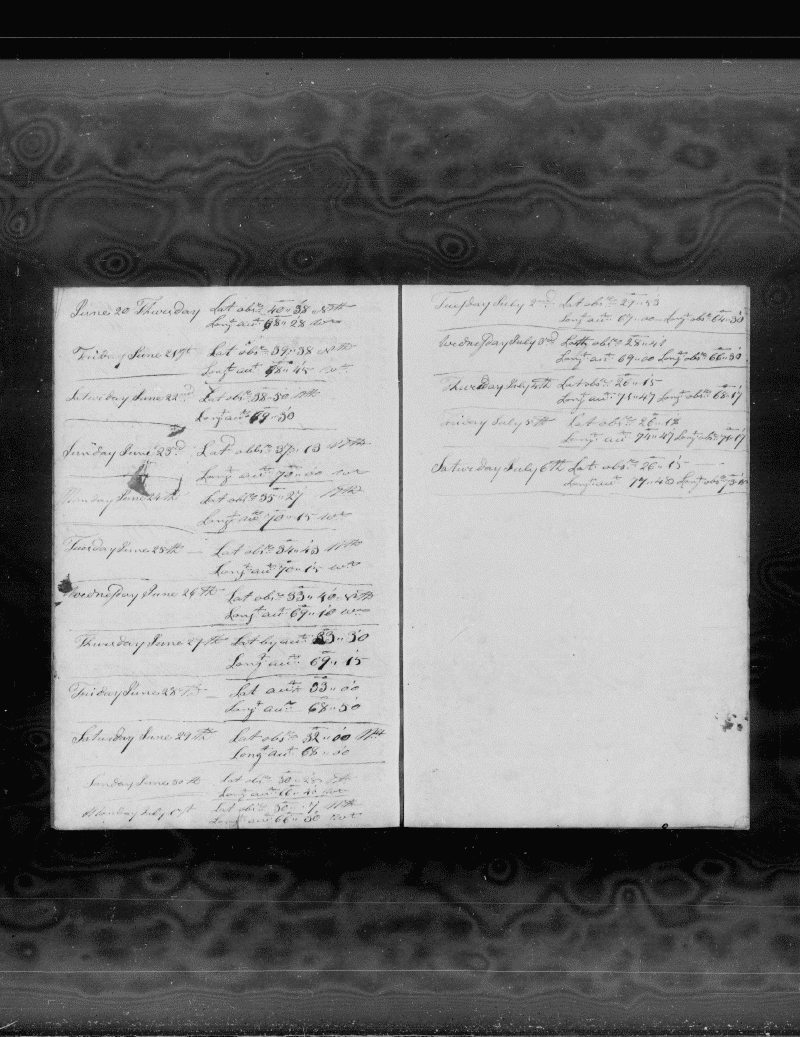 June 20 Thursday Lat obs.n 40 " 38 Nth
Long.t acc.t 68 " 28 Wes
Friday June 21st Lat obs.n 39 " 38 Nth
Long.t acc.t 68 " 45 Wes
Saturday June 22nd Lat obs.n 38 " 30 Nth
Long.t acc.t 69 " 30
Sunday June 23d Lat obbs.n 37 " 13 Nth
Long.t acc.t 70 " 00 Wes
Monday June 24th Lat obs.n 35 " 27 Nth
Long.t acc.t 70 " 15 Wes
Tuesday June 25th Lat obs.n 34 " 43 Nth
Long.t acc.t 70 " 15 Wes
Wednesday June 26th Lat obs.n 33 " 40 Nth
Long.t acc.t 69 " 10 Wes
Thursday June 27th Lat by acc.t 33 " 30
Long.t acc.t 69 " 15
Friday June 28th Lat acc.t 33 " 00
Long.t acc.t 68 " 30
Saturday June 29th Lat obs.n 32 " 00 Nth
Long.t acc.t 68 " 00
Sunday June 30th Lat obs.n 30 Nth
Long.t acc.t 66 " 40
Monday July 1st Lat obs.n 30 " Nth
Long.t acc.t 66 " 30
Tuesday July 2nd Lat obs.n 29 " 53
Long.t acc.t 67 " 00 Long.t obs.n 64 " 30
Wednesday July 3rd Latt obs.n 28 " 43
Long.t acc.t 69 " 00 Long.t obs.n 66 " 30
Thursday July 4th Lat obs.n 26 " 15
Long.t acc.t 71 " 47 Long.t obs.n 68 " 17
Friday July 5th Lat obs.n 26 " 12
Long.t acc.t 74 " 47 Long.t obs.n 71 " 17
Saturday July 6th Lat obs.n 26 " 15
Long.t acc.t 77 " 43 Long.t obs.n 73